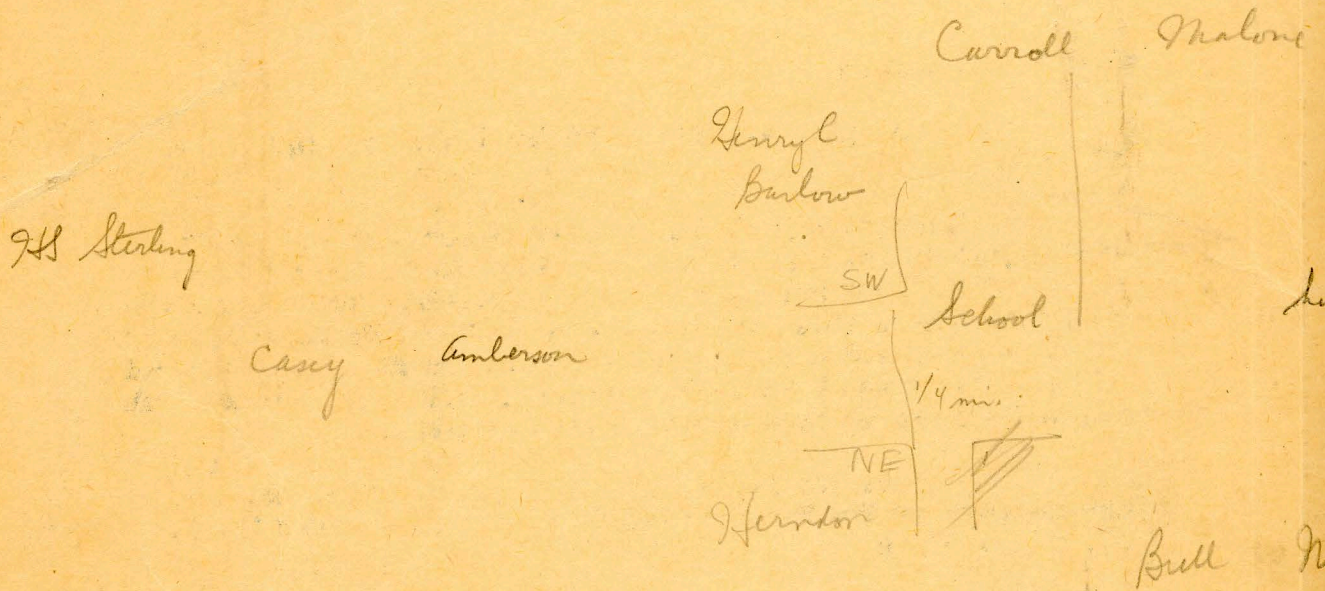 Carroll Malone
Henry C
Barlow
HS Sterling
SW
School
Casey Amberson
1/4 mi.
NE
Herndon
Bull